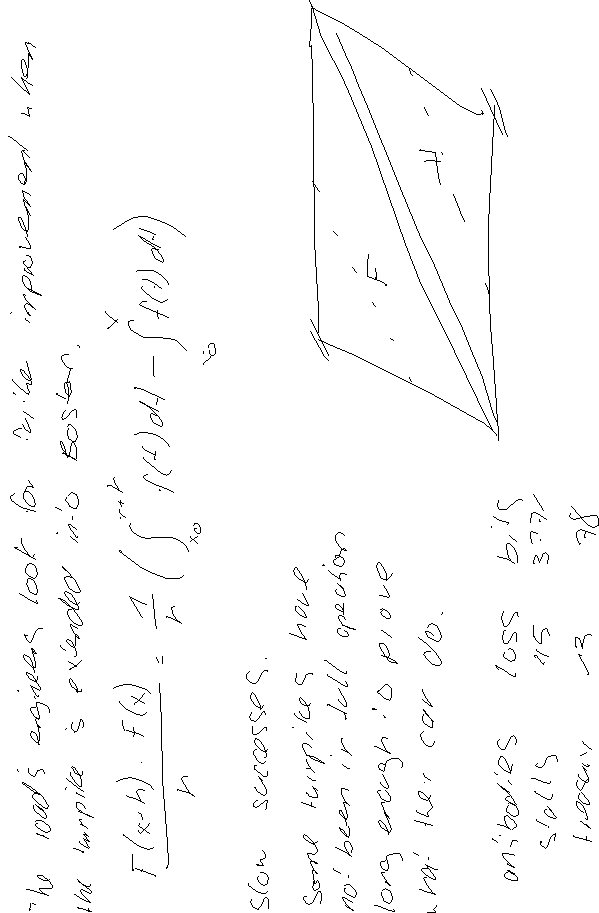 The road's engineers look for further improvement when
the turnpike is extended into Boston.
F(x+h) - F(x) / h = 1/h ( ∫ x0 x+h f(t)dt - ∫ x0 x f(t)dt )
Slow successes.
Some turnpikes have
not been in full operation
long enough to prove
what they can do.
antibodies loss bits
stalls 45
treasury 13 78
F
H